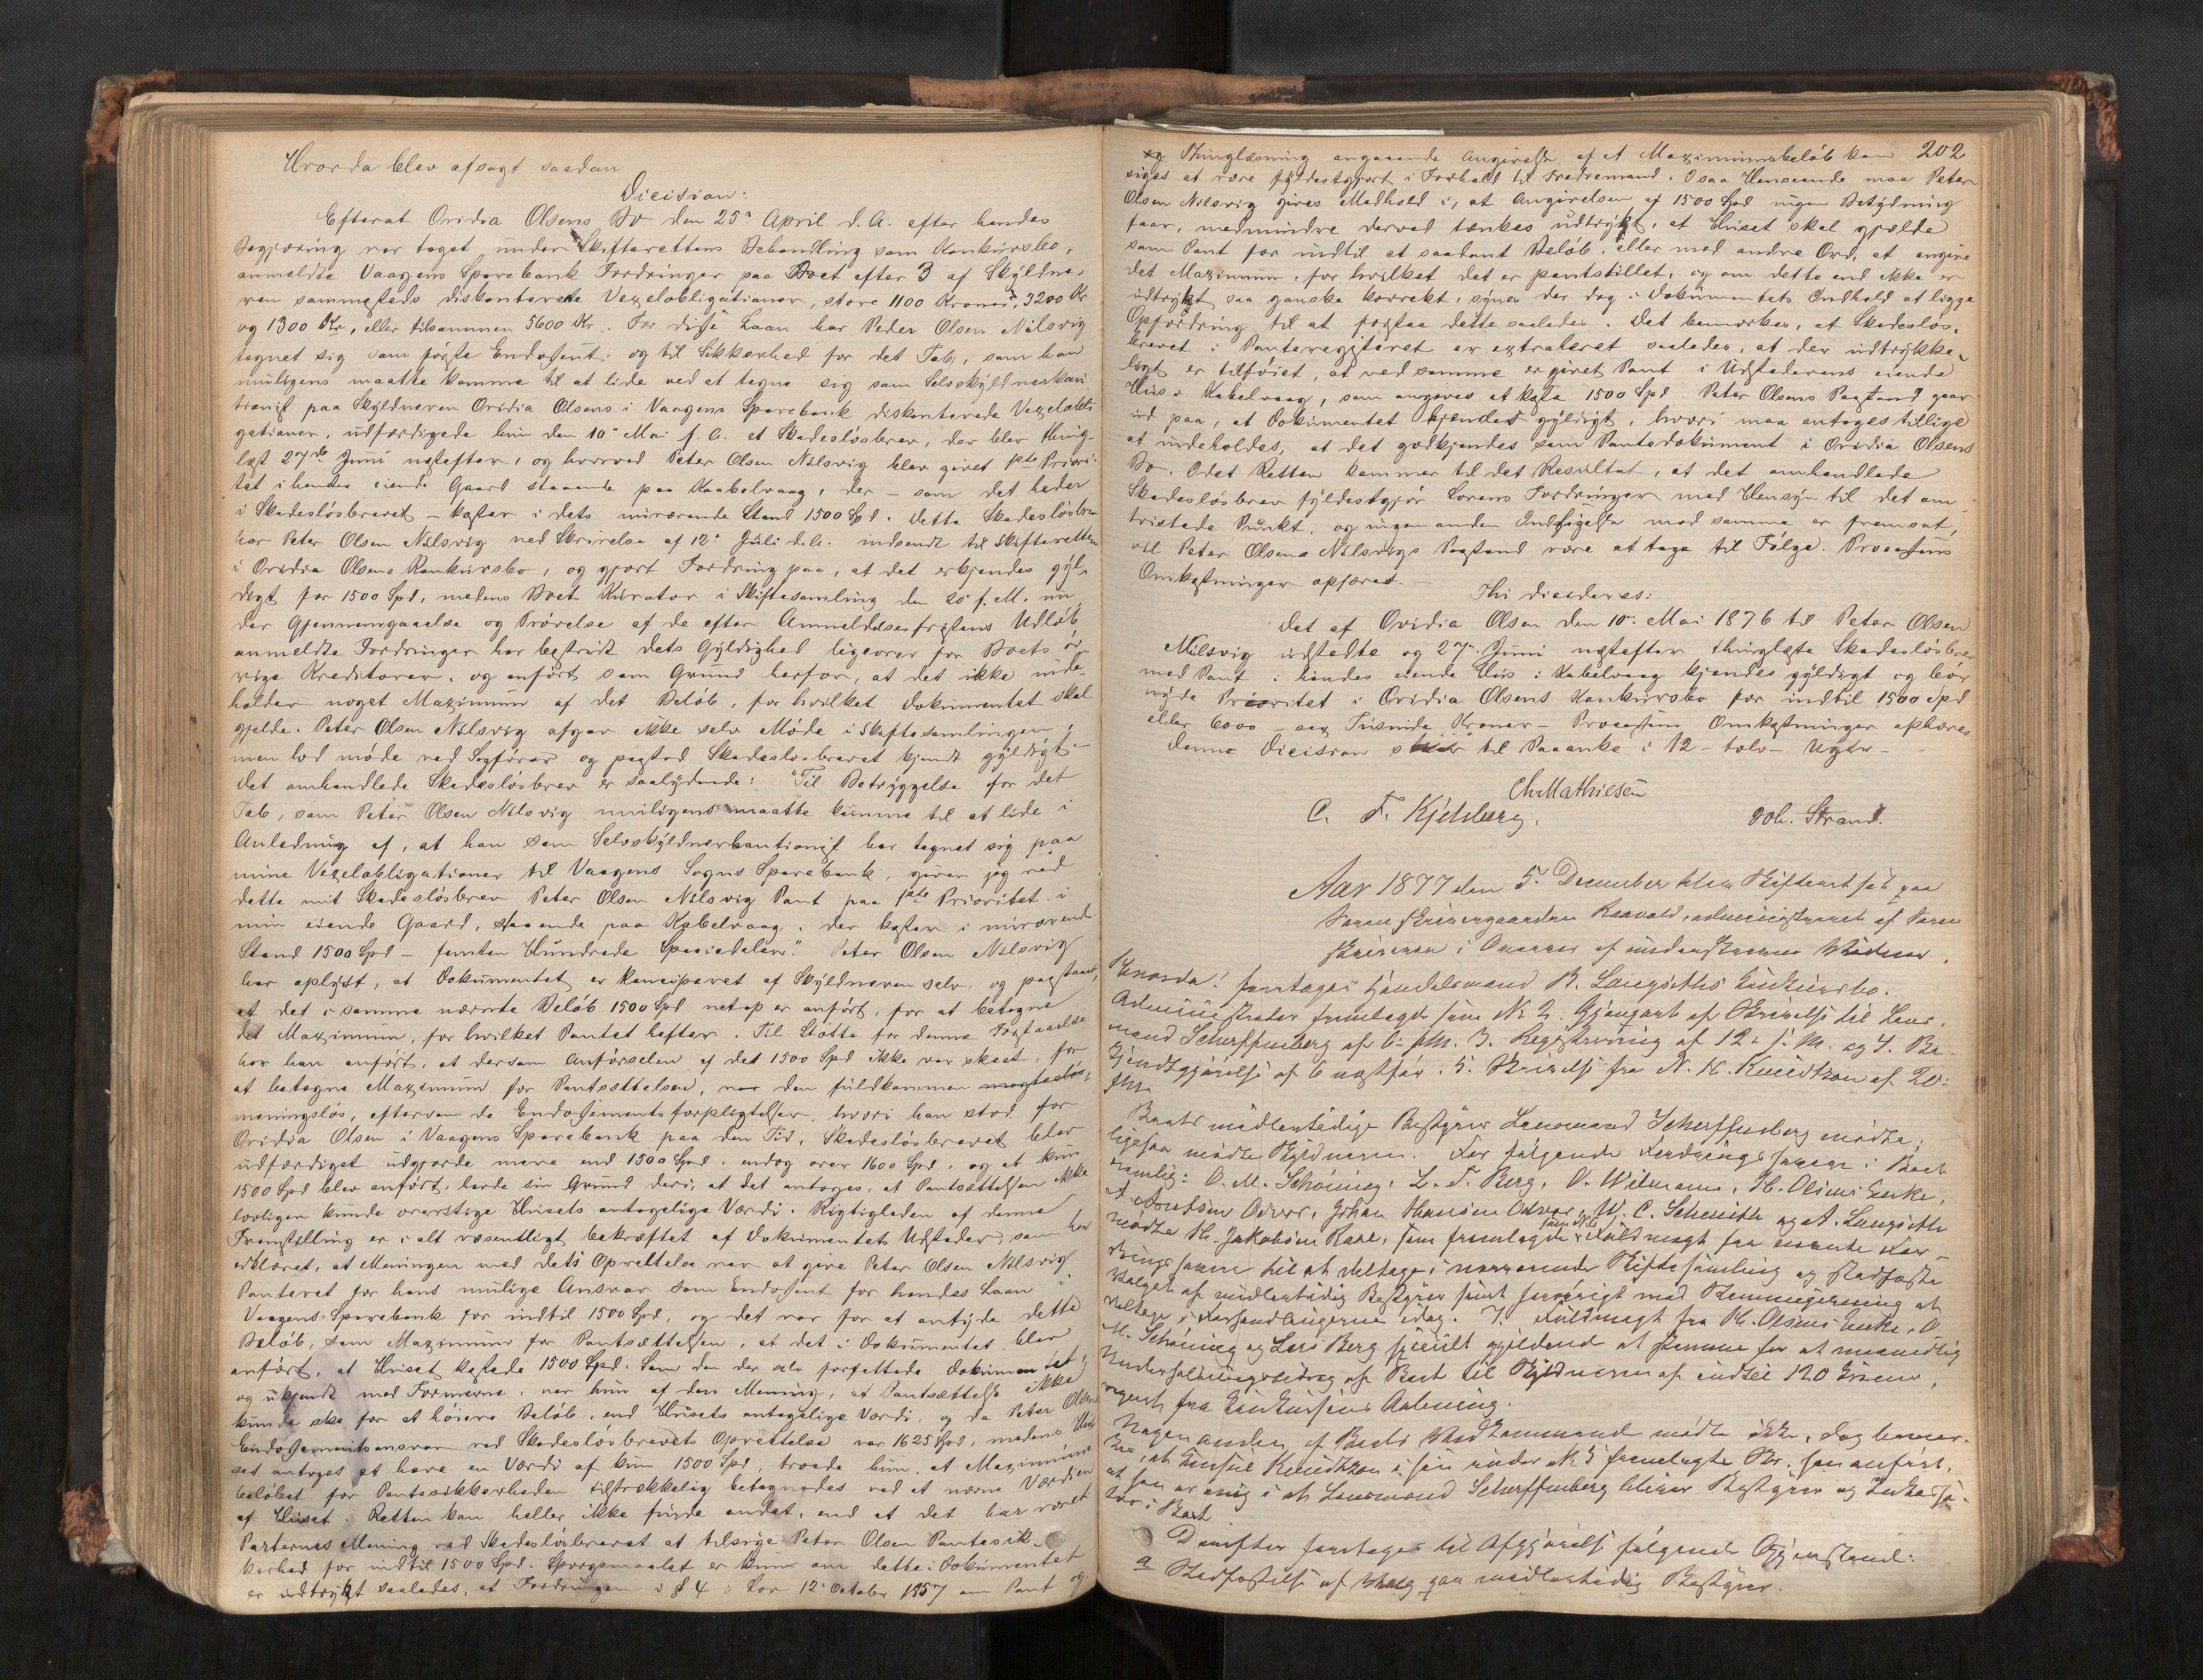 Hvorda blev afsagt saadan
Decision:
Efterat Ovidia Olsens Bo den 25de April d. A. efter hendes
Begjæring var taget under Skifterettens Behandling som Konkursbo,
anmeldte Vaagens Sparebank Fordringer paa Boet efter 3 af Skyldne-
ren sammesteds diskonterede Vexelobligationer, store 1100 Kroner, 3200 Kr
og 1300 Kr, eller tilsammen 5600 Kr. For disse Laan har Peder Olsen Nilsvig
tegnet sig som første Endossent; og til Sikkerhed for det Tab, som han
muligens maatte komme til at lide ved at tegne sig som Selvskyldnerkau-
tionist paa Skyldneren Ovidia Olsens i Vaagens Sparebank diskonterede Vexelobli
gationer, udfærdigede hun den 10de Mai f. A. et Skadesløsbrev, der blev thing-
læst 27de Juni næstefter, og hvorved Peter Olsen Nilsvig blev givet 1ste Priori-
tet i hendes eiende Gaard staaende paa Kabelvaag, der – som det heder
i Skadesløsbrevet – koster i dets nuværende Stand 1500 Spd. Dette Skadesløsbrev
har Peter Olsen Nilsvig ved Skrivelse af 12te Juli d. A. indsendt til Skifteretten
i Ovidia Olsens Konkursbo, og gjort Fordring paa, at det erkjendes gyl-
digt for 1500 Spd, medens Boets Kurator i Skiftesamling den 25 f. M. un-
der Gjennemgaaelse og Prøvelse af de efter Anmeldelsesfristens Udløb
anmeldte Fordringer har bestridt dets Gyldighed ligeover for Boets øv-
rige Kreditorer, og anført som Grund herfor, at det ikke inde-
holder noget Maximum af det Beløb, for hvilket Dokumentet skal
gjelde. Peter Olsen Nilsvig afgav ikke selv Møde i Skiftesamlingen,
men lod møde ved Sagfører og paastod Skadesløsbrevet kjendt gyldigt. –
Det omhandlede Skadesløsbrev er saalydende: "Til Betryggelse for det
Tab, som Peter Olsen Nilsvig muligens maatte komme til at lide i
Anledning af, at han som Selvskyldnerkautionist har tegnet sig paa
mine Vexelobligationer til Vaagens Sogns Sparebank, giver jeg ved
dette mit Skadesløsbrev Peter Olsen Nilsvig Pant paa 1ste Prioritet i
min eiende Gaard, staaende paa Kabelvaag, der koster i nuværende
Stand 1500 Spd – femten Hundrede Speciedaler." Peter Olsen Nilsvig
har oplyst, at Dokumentet er konciperet af Skyldneren selv, og paastaaet,
at det i samme nævnte Beløb 1500 Spd netop er anført, for at betegne
det Maximum, for hvilket Pantet hefter. Til Støtte for denne Forstaaelse
har han anført, at dersom Anførselen af det 1500 Spd ikke var skeet, for
at betegne Maximum for Pantsættelsen, var den fuldkommen
meningsløs, eftersom de Endossementsforpligtelser, hvori han stod for
Ovidia Olsen i Vaagens Sparebank paa den Tid, Skadesløsbrevet blev
udfærdiget udgjorde mere end 1500 Spd, endog over 1600 Spd, og at kun
1500 Spd blev anført, havde sin Grund deri, at det antoges, at Pantsættelsen ikke
lovligen kunde overstige Husets antagelige Værdi. Rigtigheden af denne
Fremstilling er i alt væsentligt bekræftet af Dokumentets Udsteder, som har
erklæret, at Meningen med dets Oprettelse var at give Peter Olsen Nilsvig
Panteret for hans mulige Ansvar som Endossent for hendes Laan i
Vaagens Sparebank for indtil 1500 Spd, og det var for at antyde dette
Beløb, som Maximum for Pantsættelsen, at det i Dokumentet blev
anført, at Huset kostede 1500 Spd. Som den der selv forfattede Dokumentet,
og ukjendt med Formerne, var hun af den Mening, at Pantsættelse ikke
kunde ske for et høiere Beløb, end Husets antagelige Værdi, og da Peter Olsens
Endossementsansvar ved Skadesløsbrevets Oprettelse var 1625 Spd, medens Hu-
set antoges at have en Værdi af kun 1500 Spd, troede hun, at Maximums
beløbet for Pantesikkerheden tilstrækkelig betegnedes ved at nævne Værdien
af Huset. Retten kan heller ikke finde andet, end at det har været
Parternes Mening ved Skadesløsbrevet at tilsige Peter Olsen Pantesik-
kerhed for indtil 1500 Spd. Spørgsmaalet er kun om dette i Dokumentet
er udtrykt saaledes, at Fordringen i § 4 i Lov 12te October 1857 om Pant og
202
og Thinglæsning angaaende Angivelse af et Maximumsbeløb kan
siges at være fyldestgjort i Forhold til Tredjemand. I saa Henseende maa Peter
Olsen Nilsvig gives Medhold i, at Angivelsen af 1500 Spd ingen Betydning
faar, medmindre derved tænkes udtrykt, at Huset skal gjælde
som Pant for indtil et saadant Beløb, eller med andre Ord, at angive
det Maximum, for hvilket det er pantstillet, og om dette end ikke er
udtrykt saa ganske korrekt, synes der dog i Dokumentets Indhold at ligge
Opfordring til at forstaa dette saaledes. Det bemærkes, at Skadesløs-
brevet i Panteregisteret er extraheret saaledes, at der udtrykke-
ligt er tilføiet, at ved samme er givet Pant i Udstederens eiende
Hus i Kabelvaag, som angives at koste 1500 Spd. Peter Olsens Paastand gaar
ud paa, at Dokumentet kjendes gyldigt, hvori maa antages tillige
at indeholdes, at det godkjendes som Pantedokument i Ovidia Olsens
Bo. Idet Retten kommer til det Resultat, at det omhandlede
Skadesløsbrev fyldestgjør Lovens Fordringer med Hensyn til det om-
tvistede Punkt, og ingen anden Indsigelse mod samme er fremsat,
vil Peter Olsens Nilsvigs Paastand være at tage til Følge. Processens
Omkostninger ophæves. –
Thi decideres:
Det af Ovidia Olsen den 10de Mai 1876 til Peter Olsen
Nilsvig udstedte og 27de Juni næstefter thinglæste Skadesløsbrev
med Pant i hendes eiende Hus i Kabelvaag kjendes gyldigt og bør
nyde Prioritet i Ovidia Olsens Konkursbo for indtil 1500 Spd
eller 6000 – sex Tusinde Kroner – Processens Omkostninger ophæves
Denne Decision staar til Paaanke i 12 – tolv – Uger –
Ch. Mathiesen
C. F. Kjelsberg.
Joh. Strand.
Aar 1877 den 5. December blev Skifteret sat paa
Sorenskrivergaarden administreret af Soren
skriveren i Overvær af underskrevne Vidner.
Hvorda: foretoges Handelsmand R. Langseths Konkursbo.
Administrator fremlagde som No 2. Gjenpart af Skrivelse til Lens-
mand Scherffenberg af 6 f. M. 3. Registrering af 12 f. M. og 4. Be-
kjendtgjørelse af 6 næstfør. 5. Skrivelse fra N. H. Knudtzon af 20
f. M.
Boets midlertidige Bestyrer Lensmand Scherffenberg mødte;
ligesaa mødte Skyldneren. For følgende Fordringshavere i Boet
nemlig: O. M. Schøning, L. T. Berg, O. Wilmann, H. Olsens Enke,
Johan Hansen M. C. Schmith og A. Langseth
mødte H. Jakobsen som fremlagde som No 6 Fuldmagt fra nævnte For-
dringshavere til at deltage i nærværende Skiftesamling og stadfæste
Valget af midlertidig Bestyrer samt forøvrigt med Stemmegivning at
deltage i Forhandlingerne idag. 7. Fuldmagt fra H. Olsens Enke, O
M. Schøning og Lars Berg specielt gjeldende at stemme for et maanedlig
Underholdningsbidrag af Boet til Skyldneren af indtil 120 Kroner,
regnet fra Konkursens Aabning.
Nogen anden af Boets Vedkommende mødte ikke, dog bemær-
kes, at Konsul Knudtzon i sin under No 5 fremlagte Skr. har anført,
at han er enig i at Lensmand Scherffenberg bliver Bestyrer og Inkassa-
tor i Boet
Derefter foretoges til Afgjørelse følgende Gjenstand:
a Stadfæstelse af Valg paa midlertidig Bestyrer.